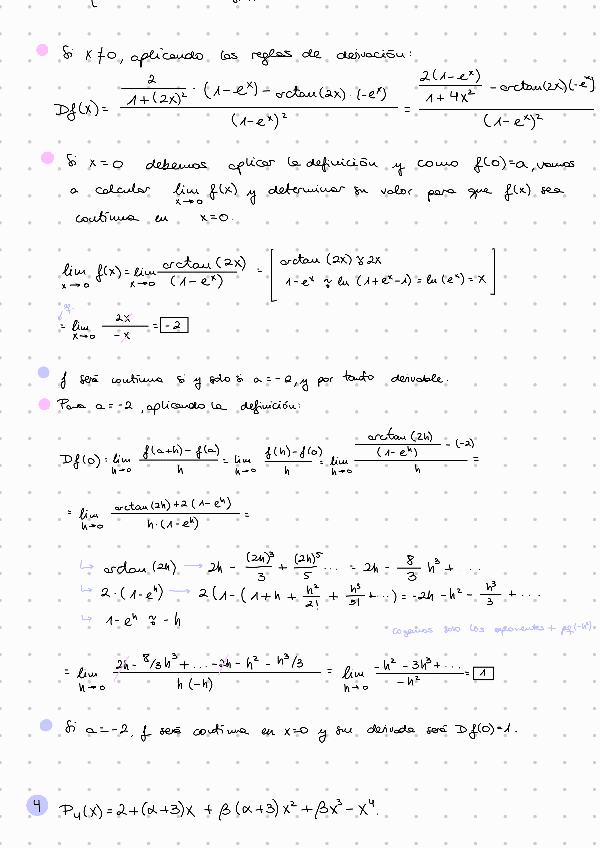 Si x≠0, aplicando las reglas de derivación:
Df(x) = (2/(1+(2x)²) · (1-eˣ) - arctan(2x) · (-eˣ))/(1-eˣ)² = (2(1-eˣ)/(1+4x²) - arctan(2x)(-eˣ))/(1-eˣ)²
Si x=0 debemos aplicar la definición y como f(0)=a, vamos
a calcular lim x→0 f(x) y determinar su valor para que f(x) sea
continua en x=0.
lim x→0 f(x) = lim x→0 arctan(2x)/(1-eˣ) = [arctan(2x) ≈ 2x
1-eˣ ≈ ln(1+eˣ-1) = ln(eˣ) = x]
= lim x→0 2x/-x = -2
f será continua si y solo si a=-2, y por tanto derivable.
Para a=-2, aplicando la definición:
Df(0): lim h→0 (f(a+h)-f(a))/h = lim h→0 (f(h)-f(0))/h = lim h→0 (arctan(2h)/(1-eʰ) - (-2))/h =
= lim h→0 (arctan(2h)+2(1-eʰ))/(h·(1-eʰ)) =
↳ arctan(2h) → 2h - (2h)³/3 + (2h)⁵/5 ... = 2h - 8/3 h³ + ...
↳ 2·(1-eʰ) → 2(1-(1+h+h²/2!+h³/3!+...) = -2h-h²-h³/3+...
↳ 1-eʰ ≈ -h
cogemos solo los exponentes + pq (-h²).
= lim h→0 (2h-8/3h³+...-2h-h²-h³/3)/(h(-h)) = lim h→0 (-h²-3h³+...)/-h² = 1
Si a=-2, f será continua en x=0 y su derivada será Df(0)=1.
4 P₄(x) = 2+(α+3)x + β(α+3)x² + βx³ - x⁴.